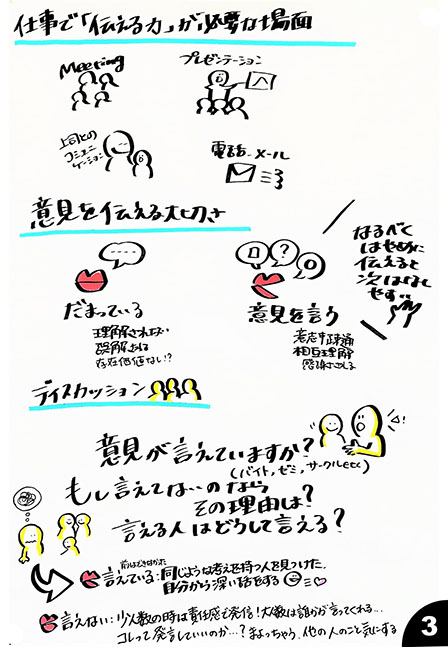 仕事で「伝える力」が必要な場面
Meeting
プレゼンテーション
上司との
コミュニ
ケーション
電話、メール
意見を伝える大切さ
だまっている
理解されない
誤解される
存在価値なし!?
意見を言う
意志疎通
相互理解
なるべく
はやめに
伝えると
次はなし
やすい
ディスカッション
意見が言えていますか?
(バイト, ゼミ, サークルetc)
もし言えてない のなら
その理由は?
言える人はどうして言える?
前はできなかった
言えている:同じような考えを持つ人を見つけた。
自分から深い話をする
言えない:少人数の時は責任感で発信!大人数は誰かが言ってくれる...
コレって発言していいのか...?まよっちゃう、他の人のこと気にする
3